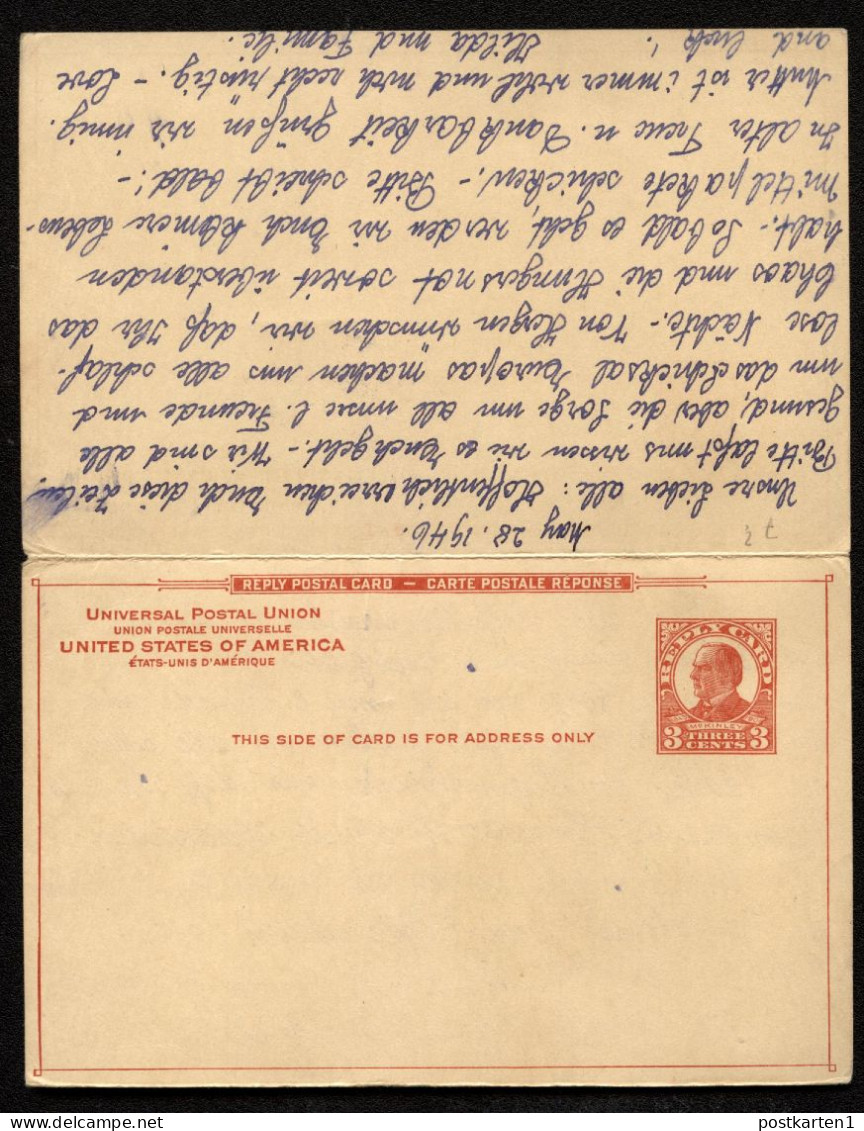 May 28. 1946.
Unsre Lieben alle: Hoffentlich erreichen Euch diese Zeilen.
Bitte laßt uns wissen wie es Euch geht. - Wir sind alle
gesund, aber die Sorge um all unsre l. Freunde und
um das Schicksal Europas machen uns alle schlaf-
lose Nächte. - Von Herzen wünschen wir, daß Ihr das
Chaos und die Hungersnot soweit überstanden
habt. - Sobald es geht, werden wir Euch kleinere Lebens-
mittelpakete schicken. - Bitte schreibt bald! -
In alter Treue u. Dankbarkeit grüßen wir innig.
Mutter ist immer wohl und noch recht rüstig. - Love
and luck! Hilda und Familie.
REPLY POSTAL CARD — CARTE POSTALE RÉPONSE
UNIVERSAL POSTAL UNION
UNION POSTALE UNIVERSELLE
UNITED STATES OF AMERICA
ÉTATS-UNIS D'AMÉRIQUE
REPLY CARD
McKINLEY
3 THREE CENTS 3
THIS SIDE OF CARD IS FOR ADDRESS ONLY
postkarten1